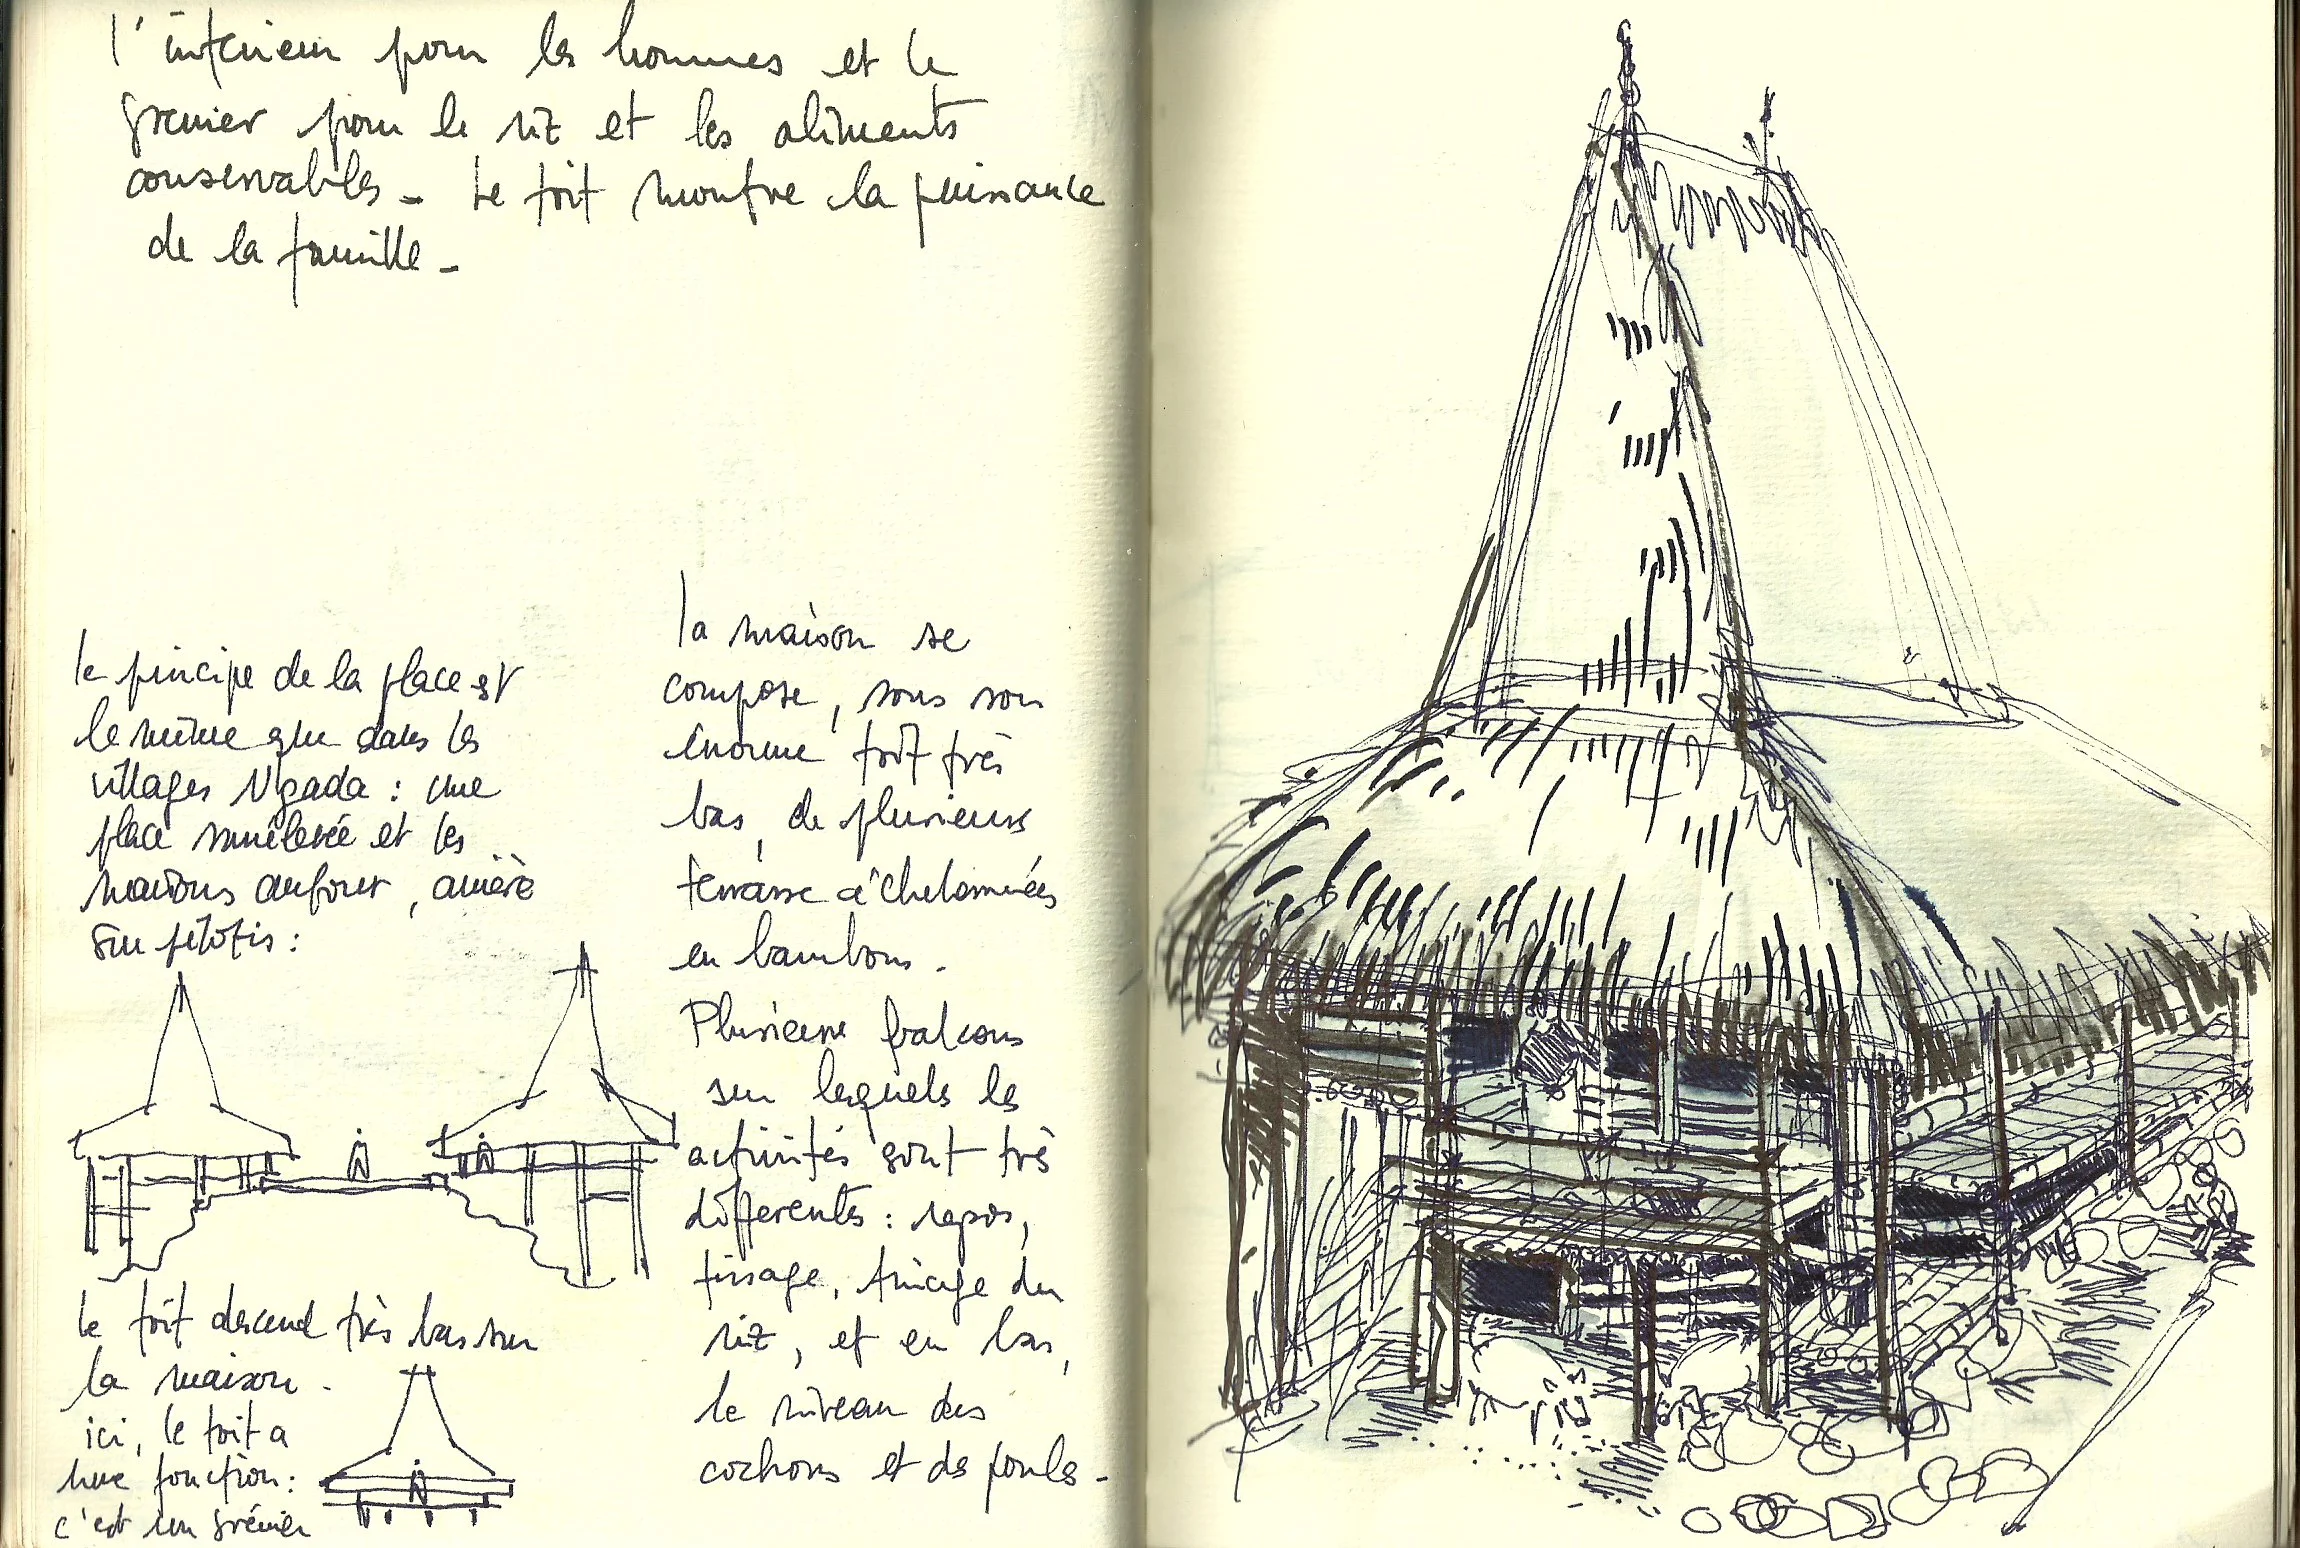 l'intérieur pour les hommes et le
grenier pour le riz et les aliments
conservables - Le toit montre la puissance
de la famille -
le principe de la place est
le même que dans les
villages Ngada : une
place surélevée et les
maisons autour, arrière
sur pilotis :
le toit descend très bas sur
la maison.
ici, le toit a
une fonction :
c'est un grenier
la maison se
compose, sous son
énorme toit très
bas, de plusieurs
terrasse échelonnées
en bambou.
Plusieurs balcons
sur lesquels les
activités sont très
différentes : repos,
tissage, triage du
riz, et en bas,
le niveau des
cochons et des poules -